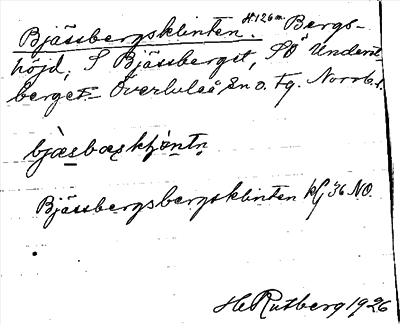 Bjässbergsklinten. H 126 m. Bergs-
höjd, S Bjässberget, SÖ Underst
berget- Överluleå sn o. tg. Norrb. l.
bjæsbæskḷintn
Bjässbergsbergsklinten kbl 36 NO.
H Rutberg 1926